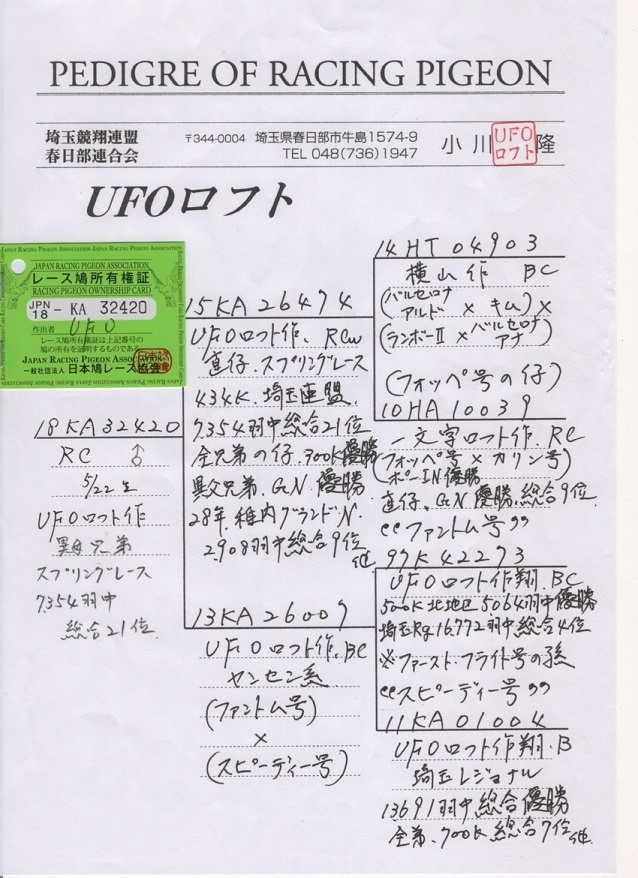 PEDIGRE OF RACING PIGEON
埼玉競翔連盟
春日部連合会
〒344-0004 埼玉県春日部市牛島1574-9
TEL 048(736)1947
小川 隆
UFO
ロフト
UFOロフト
JAPAN RACING PIGEON ASSOCIATION
レース鳩所有権証
RACING PIGEON OWNERSHIP CARD
JPN
18 - KA 32420
作出者 UFO
レース鳩所有権証は上記番号の
鳩の所有を証明するものである
JAPAN RACING PIGEON ASSOCIATION
一般社団法人 日本鳩レース協会
18KA32420
RC ♂
5/22生
UFOロフト作
異母兄弟
スプリングレース
7354羽中
総合21位
15KA26474
UFOロフト作、RCW
直仔、スプリングレース
434K、埼玉連盟
7354羽中総合21位
全兄弟の仔、700K優勝
異父兄弟、GN優勝
28年稚内グランドN
2908羽中総合9位
他
13KA26009
UFOロフト作、BC
ヤンセン系
(ファントム号)
×
(スピーディー号)
14HT04903
横山作 BC
(バルセロナ
アルド × キム) ×
(ランボーII × バルセロナ
アナ)
(フォッペ号の仔)
10HA10039
一文字ロフト作、RC
(フォッペ号 × カリン号)
ポーIN優勝
直仔、GN優勝、総合9位
"ファントム号"
99KA42273
UFOロフト作翔、BC
500K北地区5064羽中優勝
埼玉Rg16,772羽中総合4位
※ファースト・フライト号の孫
"スピーディー号"
11KA01004
UFOロフト作翔、B
埼玉レジョナル
13691羽中総合優勝
全弟、700K総合7位他